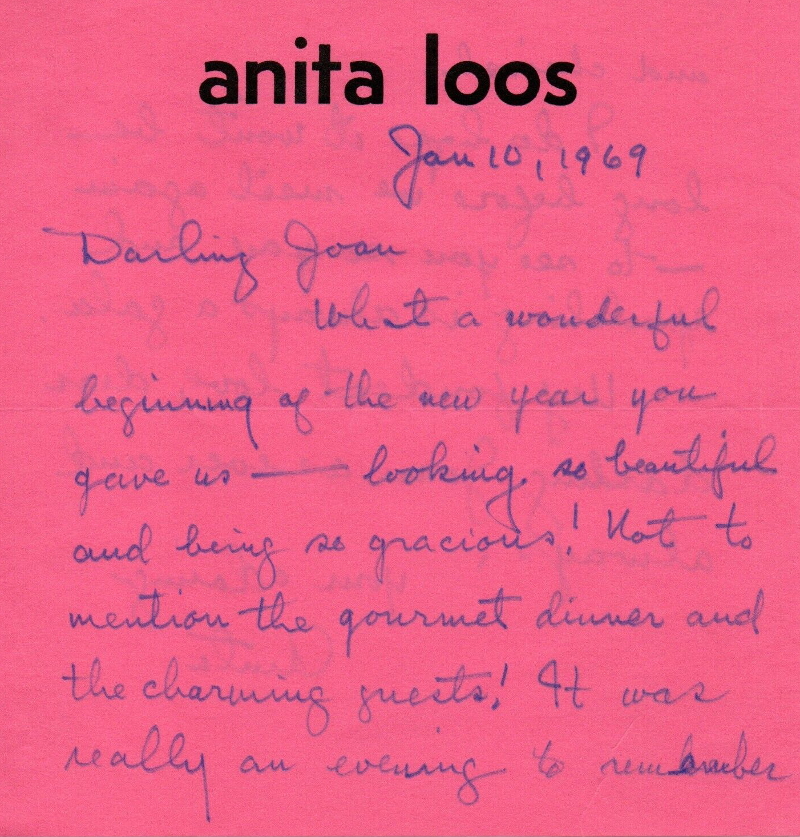 anita loos
Jan 10, 1969
Darling Joan
What a wonderful
beginning of the new year you
gave us — looking so beautiful
and being so gracious! Not to
mention the gourmet dinner and
the charming guests! It was
really an evening to remember